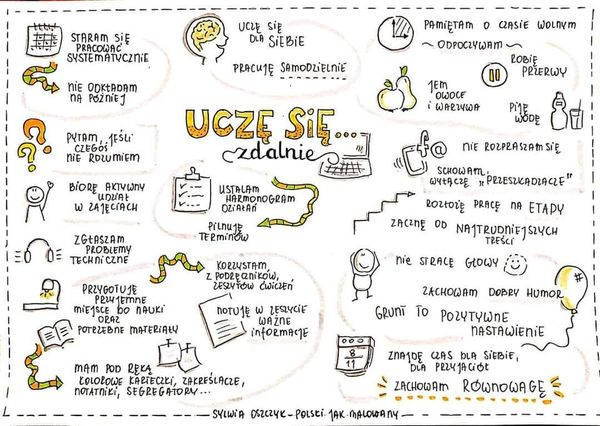 STARAM SIĘ
PRACOWAĆ
SYSTEMATYCZNIE
NIE ODKŁADAM
NA PÓŹNIEJ
PYTAM, JEŚLI
CZEGOŚ
NIE ROZUMIEM
BIORĘ AKTYWNY
UDZIAŁ
W ZAJĘCIACH
ZGŁASZAM
PROBLEMY
TECHNICZNE
PRZYGOTUJĘ
PRZYJEMNE
MIEJSCE DO NAUKI
ORAZ
POTRZEBNE MATERIAŁY
MAM POD RĘKĄ
KOLOROWE KARTECZKI, ZAKREŚLACZE,
NOTATNIKI, SEGREGATORY...
UCZĘ SIĘ
DLA
SIEBIE
PRACUJĘ SAMODZIELNIE
UCZĘ SIĘ...
zdalnie
USTALAM
HARMONOGRAM
DZIAŁAŃ
PILNUJĘ
TERMINÓW
KORZYSTAM
Z PODRĘCZNIKÓW,
ZESZYTÓW ĆWICZEŃ
NOTUJĘ W ZESZYCIE
WAŻNE
INFORMACJE
PAMIĘTAM O CZASIE WOLNYM
~ODPOCZYWAM~
ROBIĘ
PRZERWY
JEM
OWOCE
I WARZYWA
PIJĘ
WODĘ
f@
NIE ROZPRASZAM SIĘ
SCHOWAM,
WYŁĄCZĘ „PRZESZKADZACZE"
ROZŁOŻĘ PRACĘ NA ETAPY
ZACZNĘ OD NAJTRUDNIEJSZYCH
TREŚCI
NIE STRACĘ GŁOWY
ZACHOWAM DOBRY HUMOR
#
GRUNT TO POZYTYWNE
NASTAWIENIE
8
11
ZNAJDĘ CZAS DLA SIEBIE,
DLA PRZYJACIÓŁ
ZACHOWAM RÓWNOWAGĘ
SYLWIA OSZCZYK-POLSKI JAK MALOWANY